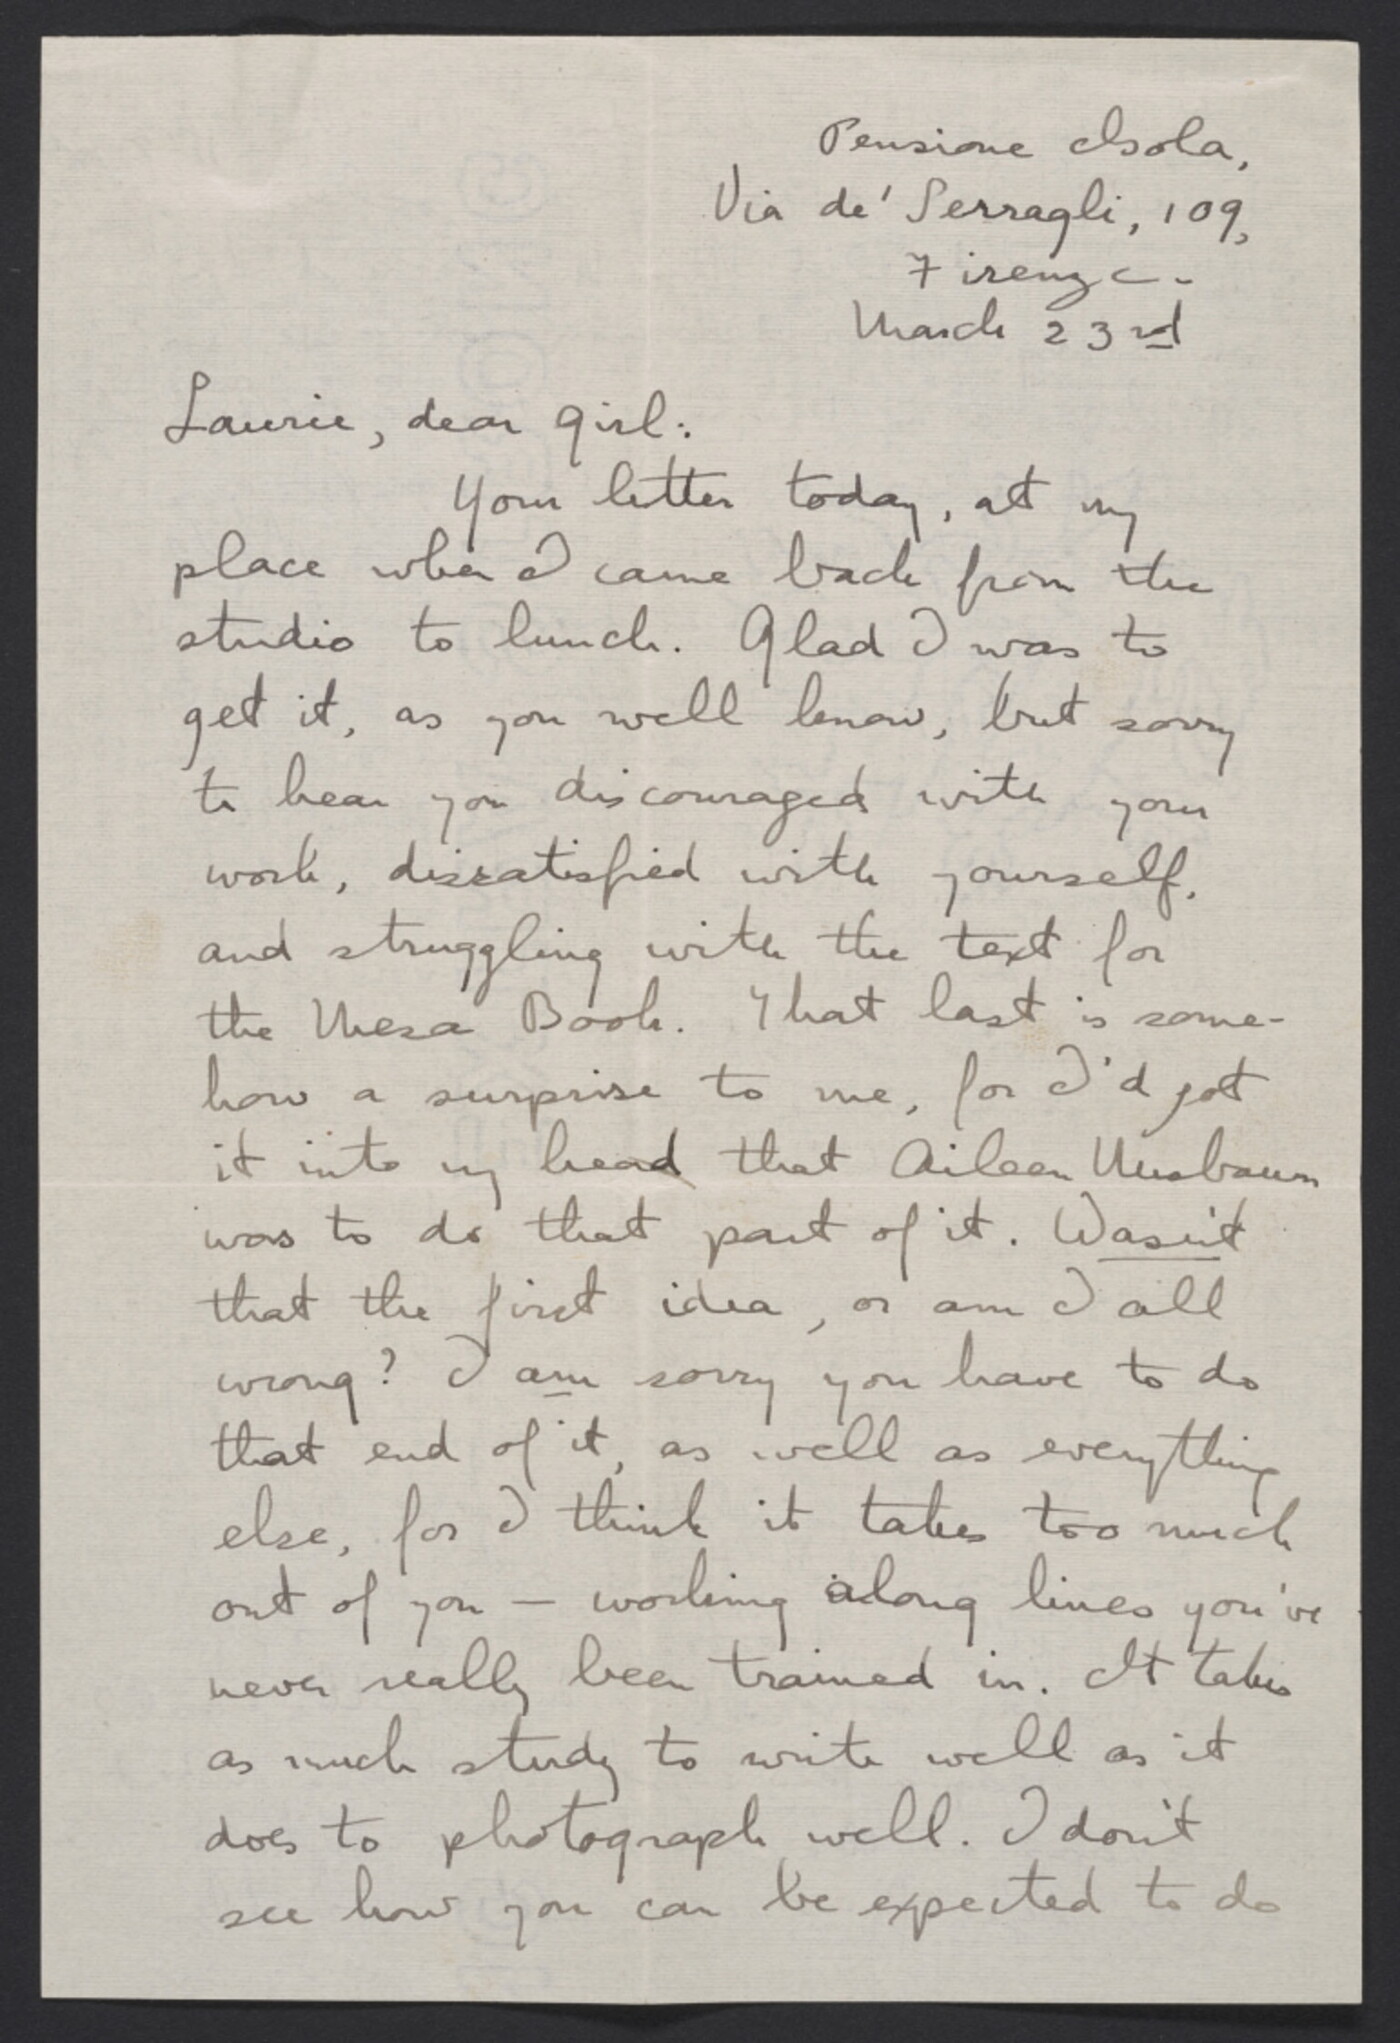 Pensione Isola,
Via de' Serragli, 109,
Firenze.
March 23rd
Laurie, dear girl:
Your letter today, at my
place when I came back from the
studio to lunch. Glad I was to
get it, as you well know, but sorry
to hear you discouraged with your
work, dissatisfied with yourself,
and struggling with the text for
the Mesa Book. That last is some-
how a surprise to me, for I'd got
it into my head that Aileen Nusbaum
was to do that part of it. Wasn't
that the first idea, or am I all
wrong? I am sorry you have to do
that end of it, as well as everything
else, for I think it takes too much
out of you — working along lines you've
never really been trained in. It takes
as much study to write well as it
does to photograph well. I don't
see how you can be expected to do